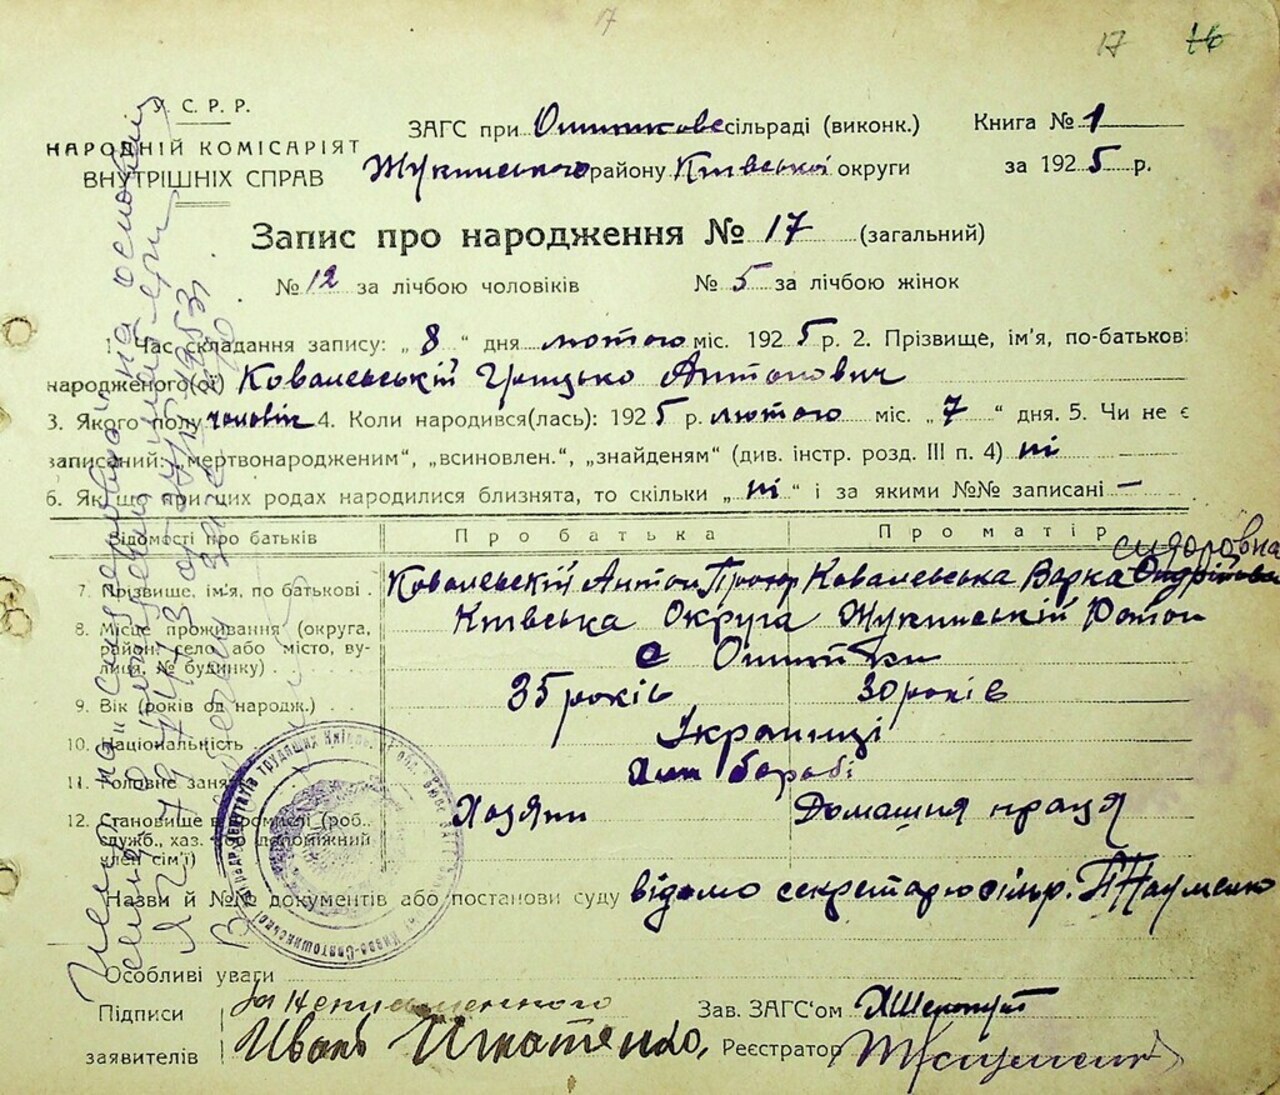 17
17 16
У. С. Р. Р.
НАРОДНІЙ КОМІСАРІЯТ
ВНУТРІШНІХ СПРАВ
ЗАГС при Ошиткове сільраді (виконк.)
Жукинського району Київської округи
Книга № 1
за 1925 р.
Запис про народження № 17 (загальний)
№ 12 за лічбою чоловіків № 5 за лічбою жінок
1. Час складання запису: „ 8 “ дня лютого міс. 1925 р. 2. Прізвище, ім'я, по-батькові
народженого(ої) Ковалевській Грицько Антонович
3. Якого полу чоловіч 4. Коли народився(лась): 1925 р. лютого міс. „ 7 “ дня. 5. Чи не є
записаний: „мертвонародженим“, „всиновлен.“, „знайденям“ (див. інстр. розд. III п. 4) ні
6. Як що при цих родах народилися близнята, то скільки „ ні “ і за якими №№ записані —
Відомості про батьків Про батька Про матір
сидоровна
7. Прізвище, ім'я, по батькові . Ковалевській Антон Ковалевська Варка
8. Місце проживання (округа, район, село або місто, вулиця, № будинку) Київська Округа Жукинській Район
с Ошитки
9. Вік (років од народж.) 35 років 30 років
10. Національність Українці
11. Головне заняття Хліборобі
12. Становище в промислі (роб., служб., хаз. або допоміжний член сім'ї) Хазяин Домашня праця
Назви й №№ документів або постанови суду відомо секретарю сільр. Науменко
Особливі уваги
Підписи За неписьменного Зав. ЗАГС'ом
заявителів Иванъ Игнатенко, Реєстратор